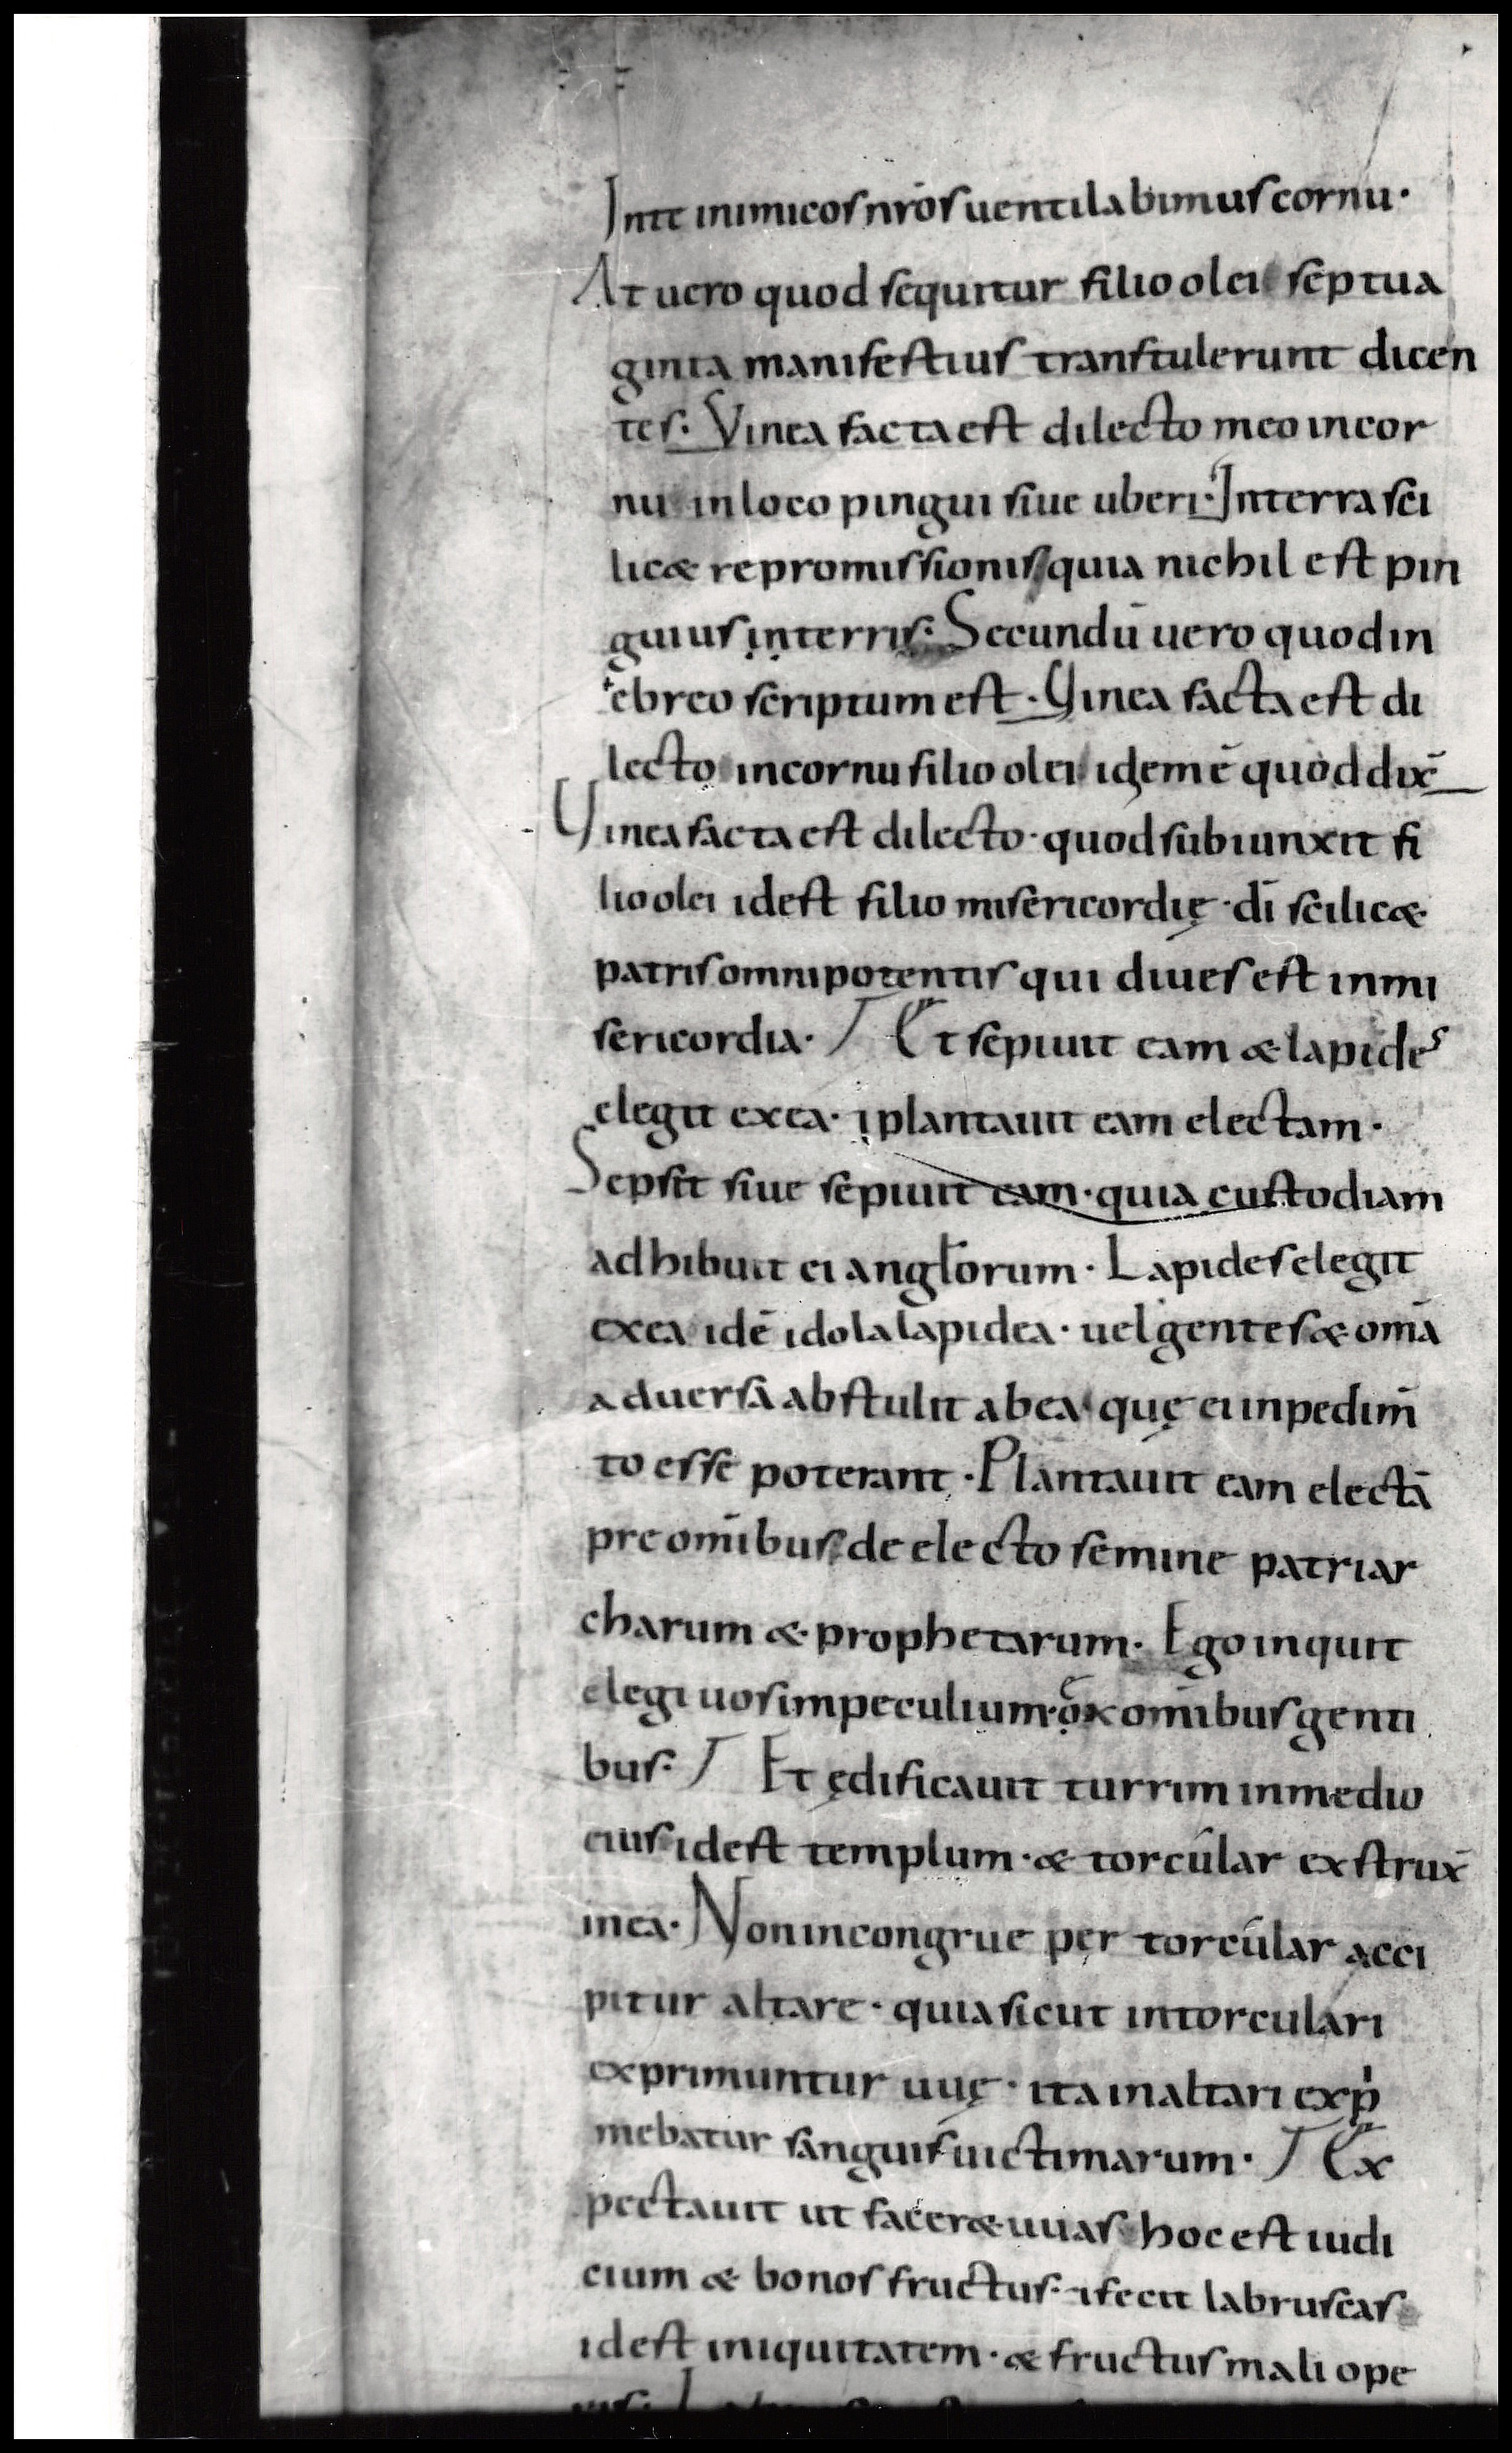 Inte inimicos nr̄os uentilabimus cornu·
At uero quod sequitur filio olei septua
ginta manifestius transtulerunt dicen
tes· Vinea facta est dilecto meo in cor
nu in loco pingui siue uberi· In terra sci
licet repromissionis quia nichil est pin
guius in terris· Secundū uero quod in
ebreo scriptum est· Vinea facta est di
lecto in cornu filio olei idem ē quod dix̄
Vinea facta est dilecto· quod subiunxit fi
lio olei id est filio misericordię· dī scilicet
patris omnipotentis qui diues est in mi
sericordia· Et sepiuit eam & lapides
elegit ex ea· ⁊ plantauit eam electam·
Sepsit siue sepiuit eam· quia custodiam
adhibuit ei angłorum· Lapides elegit
ex ea idē idola lapidea· uel gentes & om̄a
aduersa abstulit ab ea quę ei inpedim̄
to esse poterant· Plantauit eam electā
pre om̄ibus de electo semine patriar
charum & prophetarum· Ego inquit
elegi uos im peculium ex om̄ibus genti
bus· Et ędificauit turrim in medio
eius id est templum· & torcular exstrux̄
in ea· Non incongrue per torcular acci
pitur altare· quia sicut in torculari
exprimuntur uuę· ita in altari exp
mebatur sanguis uictimarum· Ex
pectauit ut faceret uuas hoc est iudi
cium & bonos fructus· ⁊ fecit labruscas
id est iniquitatem· & fructus mali ope